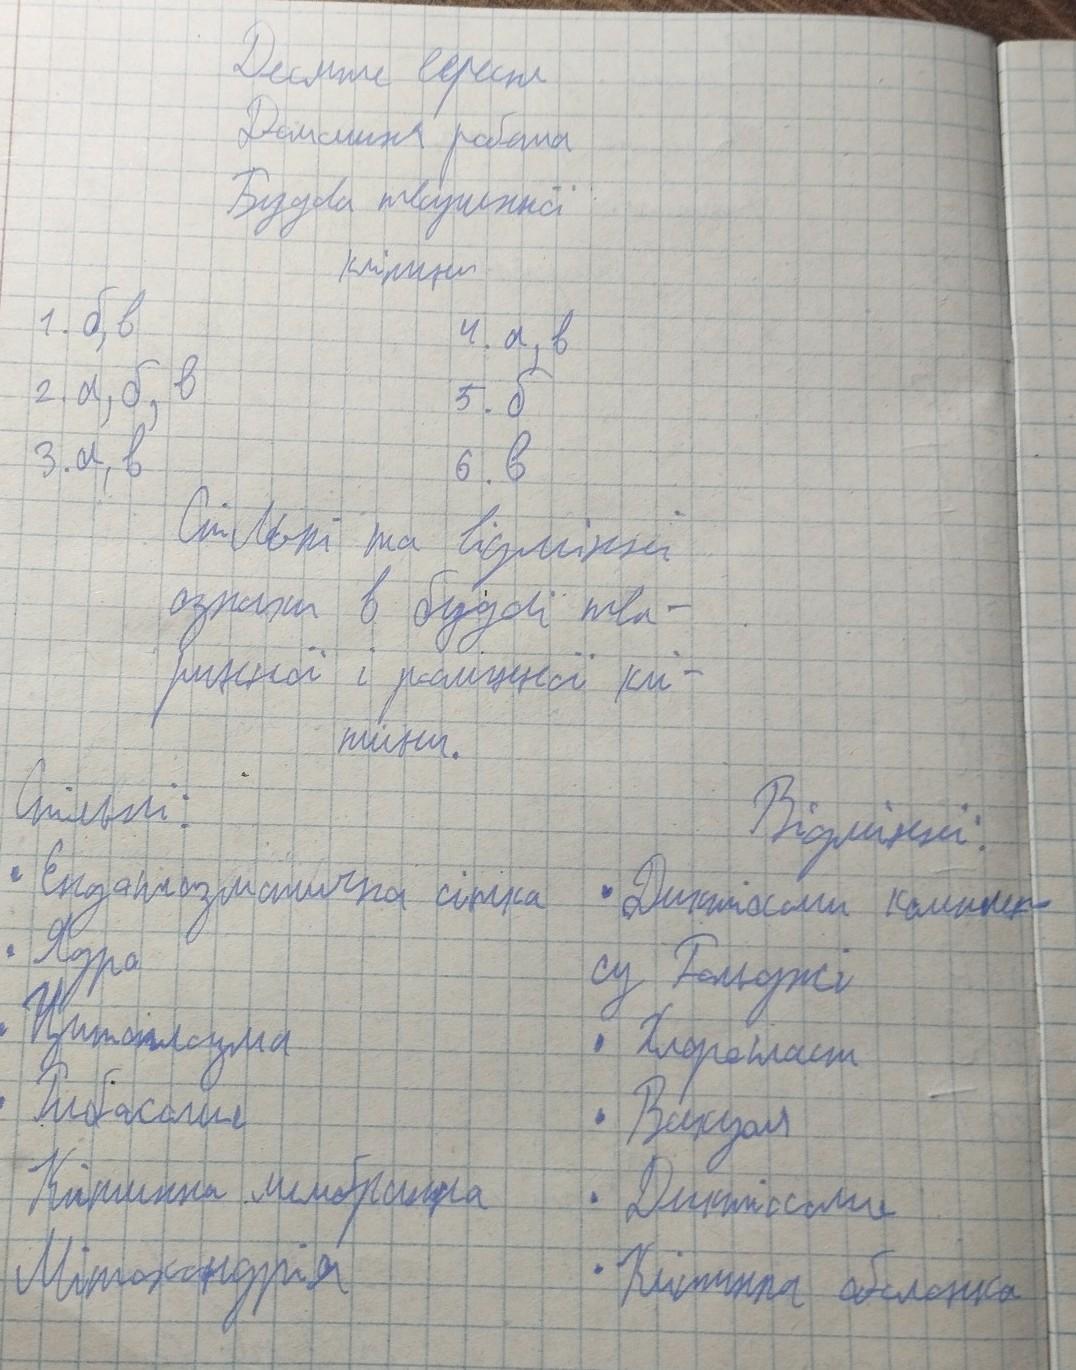 Десяте вересня
Домашня робота
Будова тваринної
клітини
1. б, в
4. а, в
2. а, б, в
5. б
3. а, в
6. в
Спільні та відмінні
ознаки в будові тва-
ринної і рослинної клі-
тини.
Спільні:
Відмінні:
• Ендоплазматична сітка
• Диктіосоми комплек-
• Ядро
су Гольджі
• Цитоплазма
• Хлоропласт
• Рибосоми
• Вакуоля
Клітинна мембрана
• Диктіосоми
Мітохондрія
• Клітинна оболонка